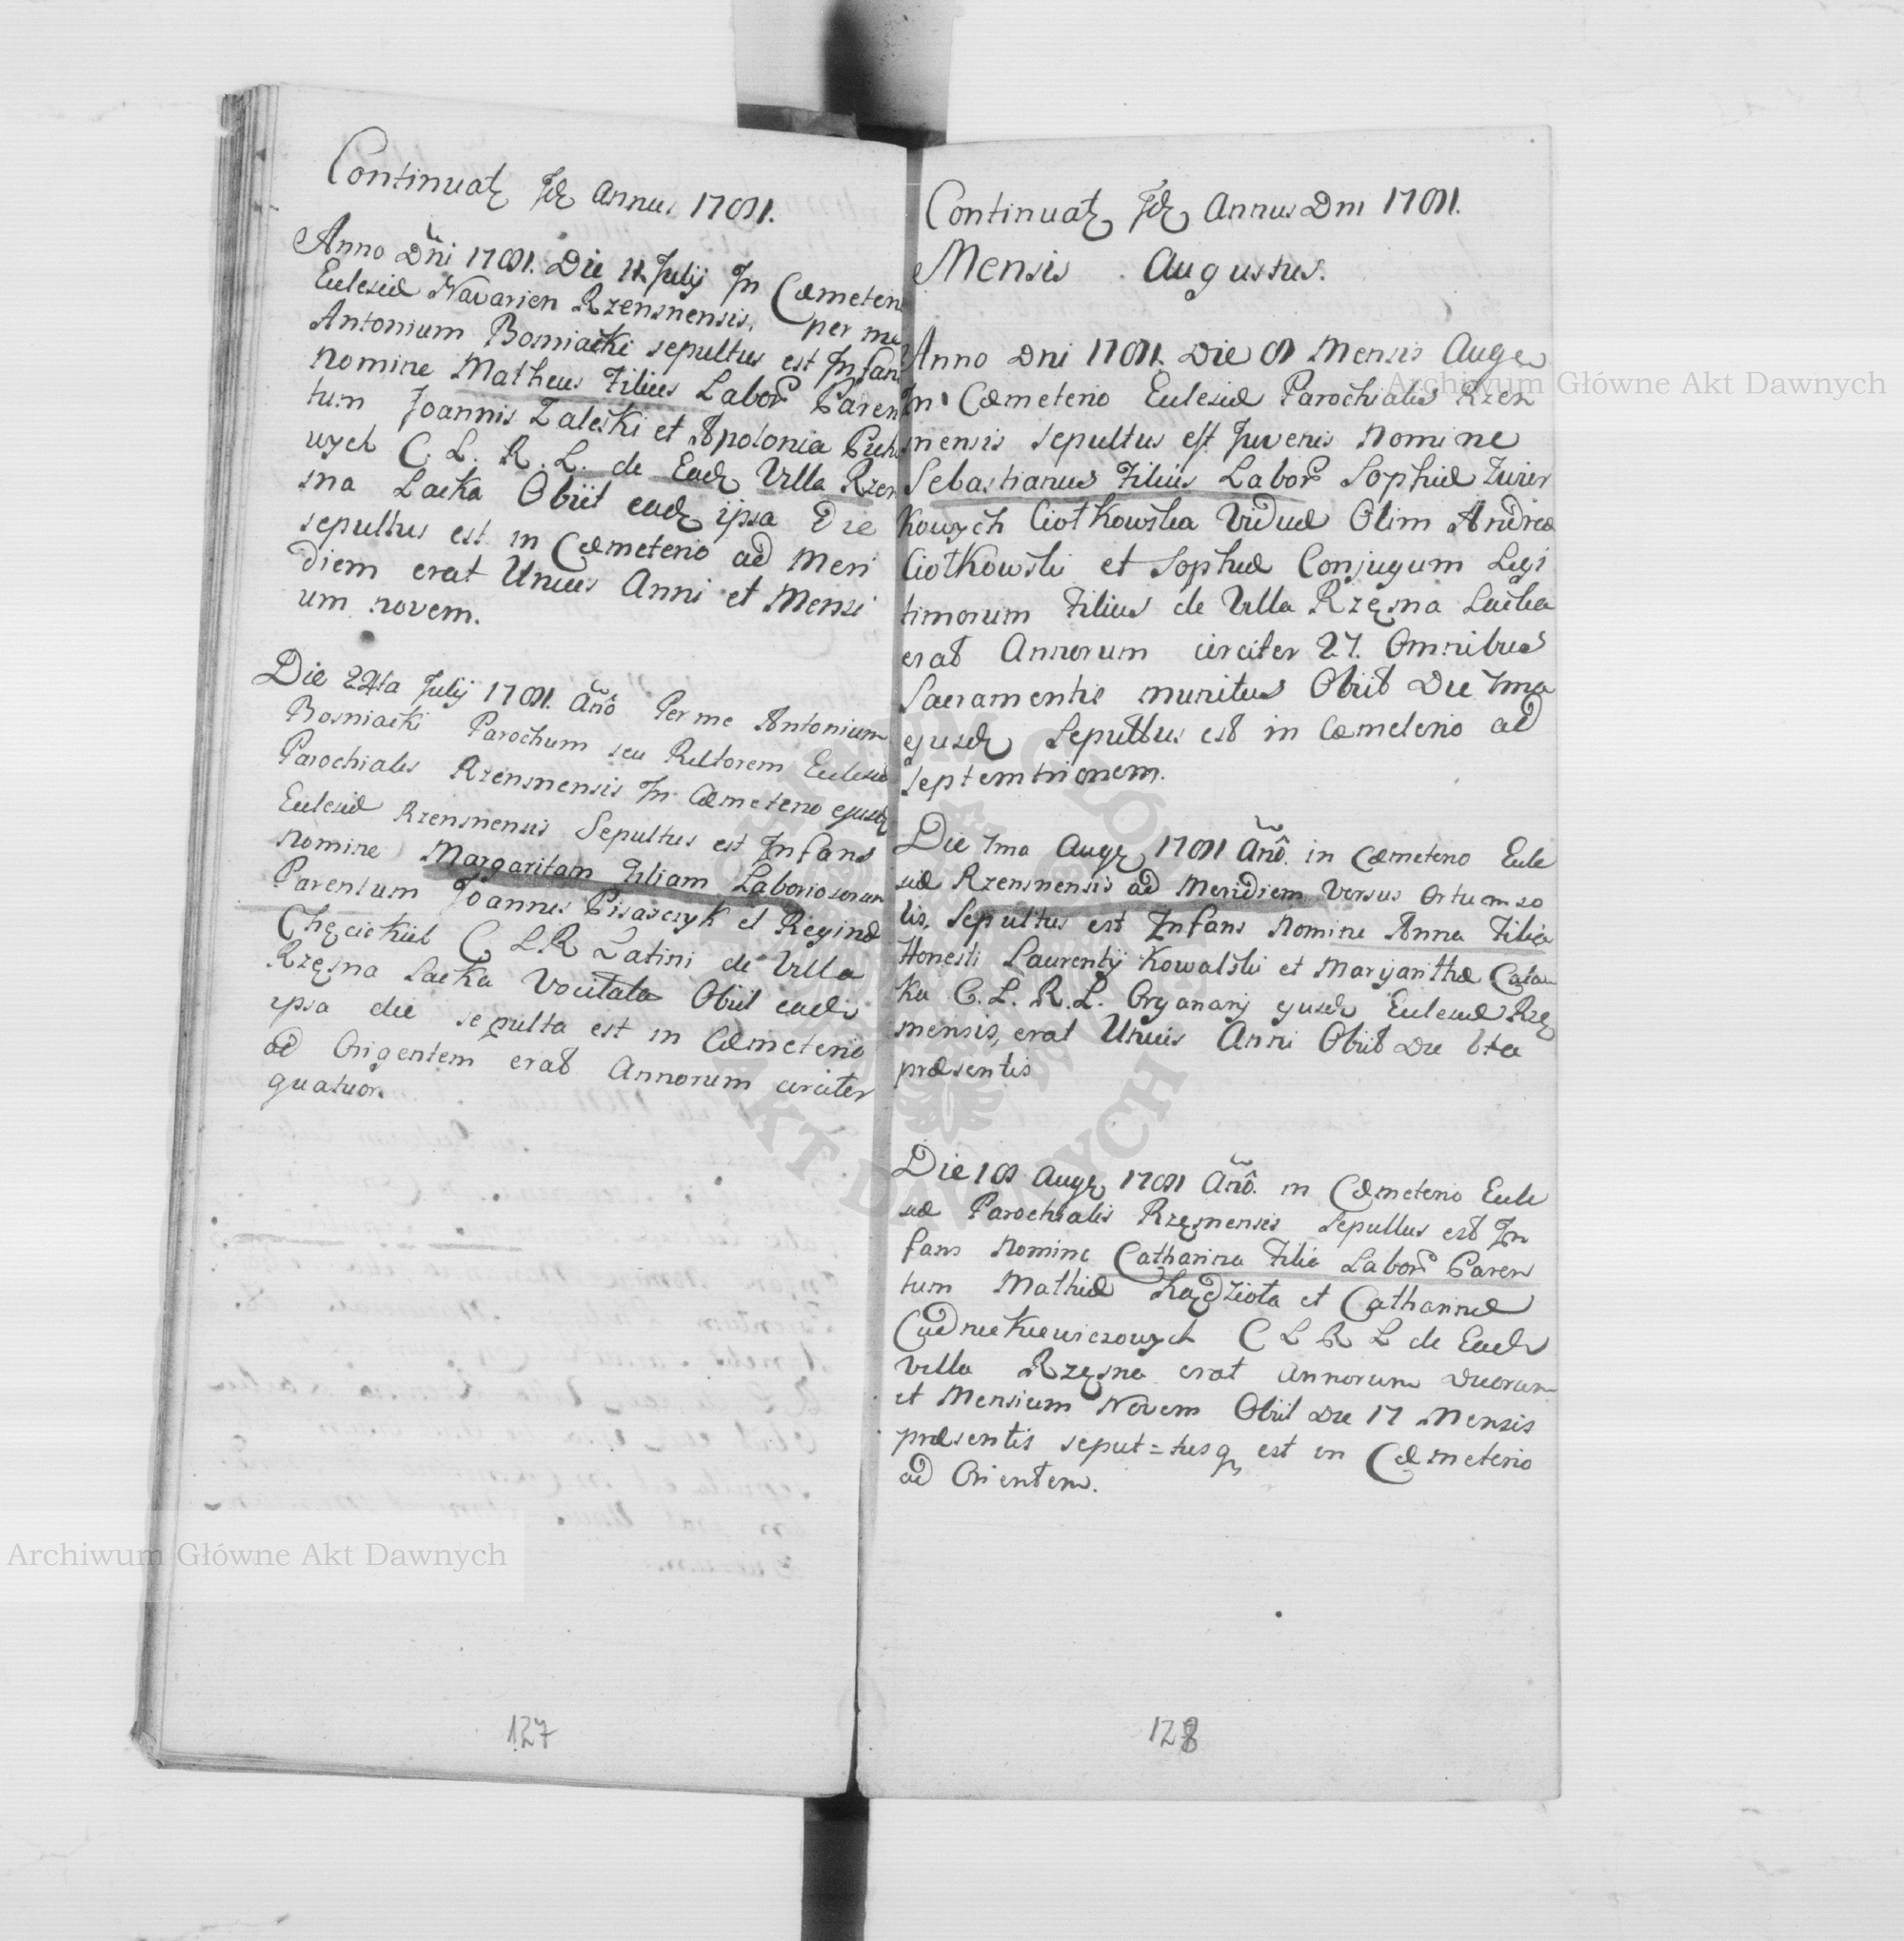 Continuatę Idę Annus 1781.
Anno Dñi 1781. Die 11. Julij In Cæmeterio
Eulesiæ Navarien Rzensnensis. per me
Antonium Bosniacki sepultus est Infans
nomine Matheus Filius Labor Paren
tum Joannis Zaleski et Apolonia
wych C. L. R. L. de Eadę Villa Rzen
sna Lacka Obiit eadę ipsa Die
sepultus est in Cæmeterio ad Meri
diem erat Unius Anni et Mensi
um novem.
Die 24ta Julij 1781. Añô Per me Antonium
Bosniacki Parochum seu Rectorem Eulesiæ
Parochialis Rzensnensis In Cæmeterio ejusdę
Eulesiæ Rzensnensis Sepultus est Infans
Nomine Margaritam Filiam Laboriosorum
Parentum Joannis Pisarczyk et Reginæ
C L R Latini de Villa
Rzęsna Lacka Vocitata Obiit eadę
ipsa die sepulta est in Cæmeterio
ad Origentem erat Annorum circiter
quatuor.
127
Continuatę Idę Annus Dni 1781.
Mensis Augustus.
Anno Dni 1781. Die 8 Mensis Auge
In Cæmeterio Eulesiæ Parochialis Rzen
snensis sepultus est Juvenis Nomine
Sebastianus Filius Labor Sophiæ
kowych Ciołkowska Viduæ Olim Andreæ
Ciołkowski et Sophiæ Conjugum Legi
timorum Filius de Villa Rzęsna Lacka
erat Annorum circiter 27. Omnibus
Sacramentis munitus Obiit Die 7ma
ejusdę Sepultus est in Cæmeterio ad
septemtrionem.
Die 7ma Augę 1781 Añô. in Cæmeterio Eule
siæ Rzensnensis ad Meridiem Versus Ortum so
lis, Sepultus est Infans Nomine Anna Filia
Honesti Laurentij Kowalski et Margarithæ
C. L. R. L. Organarij ejusdę Eulesiæ Rzę
snensis, erat Unius Anni Obiit Die 6ta
præsentis
Die 18 Augę 1781 Añô. in Cæmeterio Eule
siæ Parochialis Rzęsnensis Sepultus est In
fans Nomine Catharina Filia Labor Paren
tum Mathiæ Kądziota et Catharinæ
C L R L de Eadę
Villa Rzęsna erat Annorum Duorum
et Mensium Novem Obiit Die 17 Mensis
præsentis seput=tusq est in Cæmeterio
ad Orientem.
128
Archiwum Główne Akt Dawnych
Archiwum Główne Akt Dawnych
ARCHIWUM GŁÓWNE AKT DAWNYCH